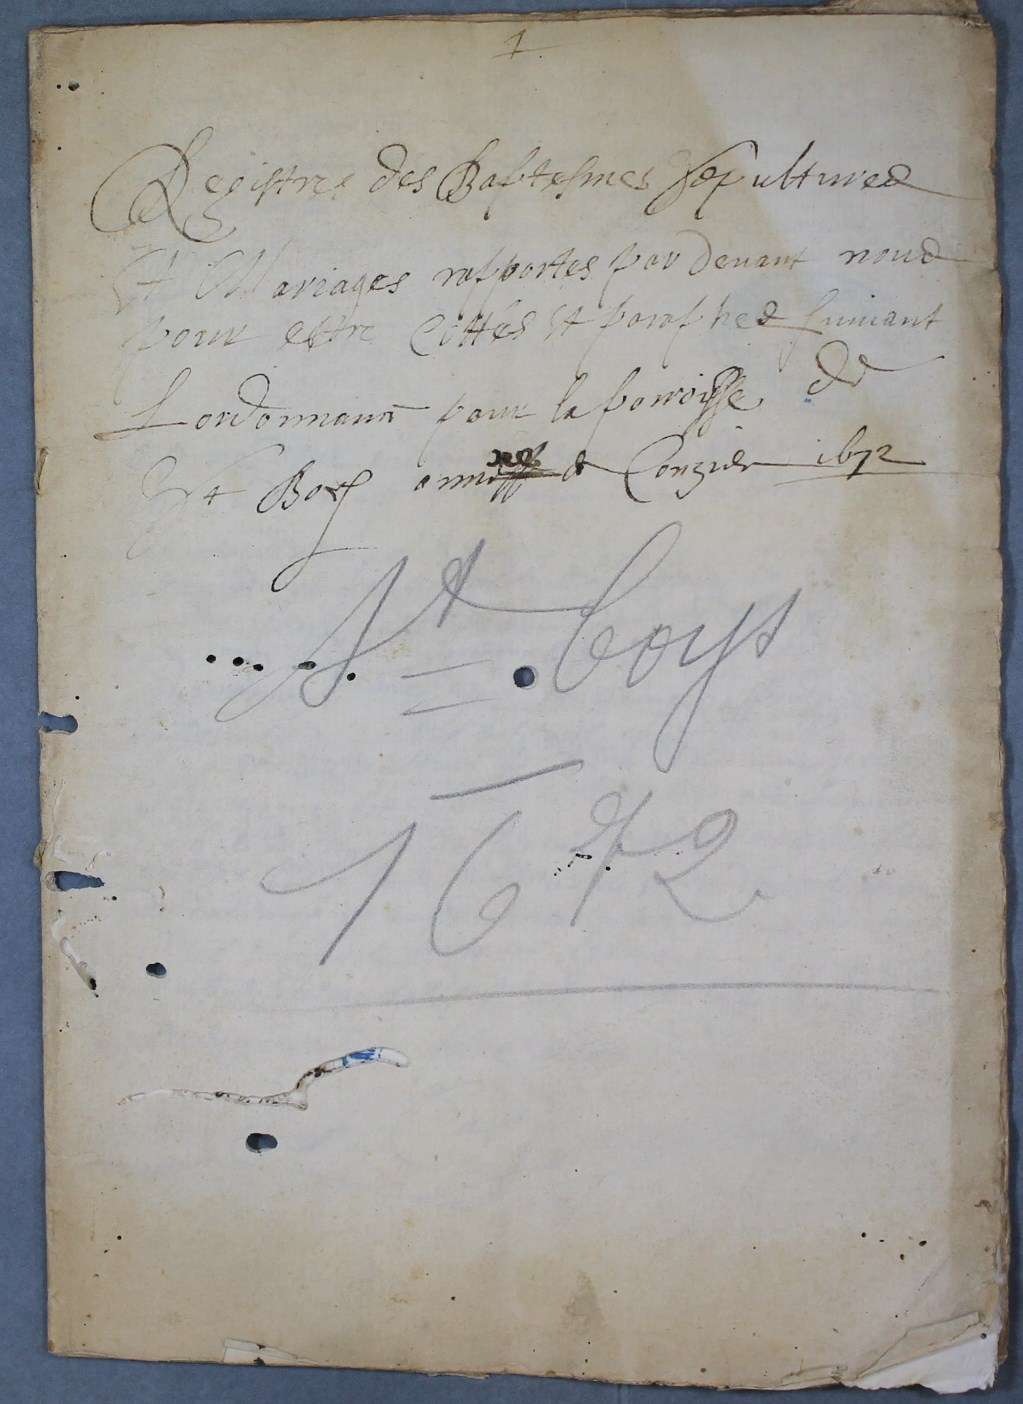 1
Registres des Baptesmes sepultures
Et Mariages rapportes par devant nous
pour estre Cottés Et paraphes suivant
Lordonnance pour la parroisse de
St Boys annexes de Conzieu 1672
St Boys
1672